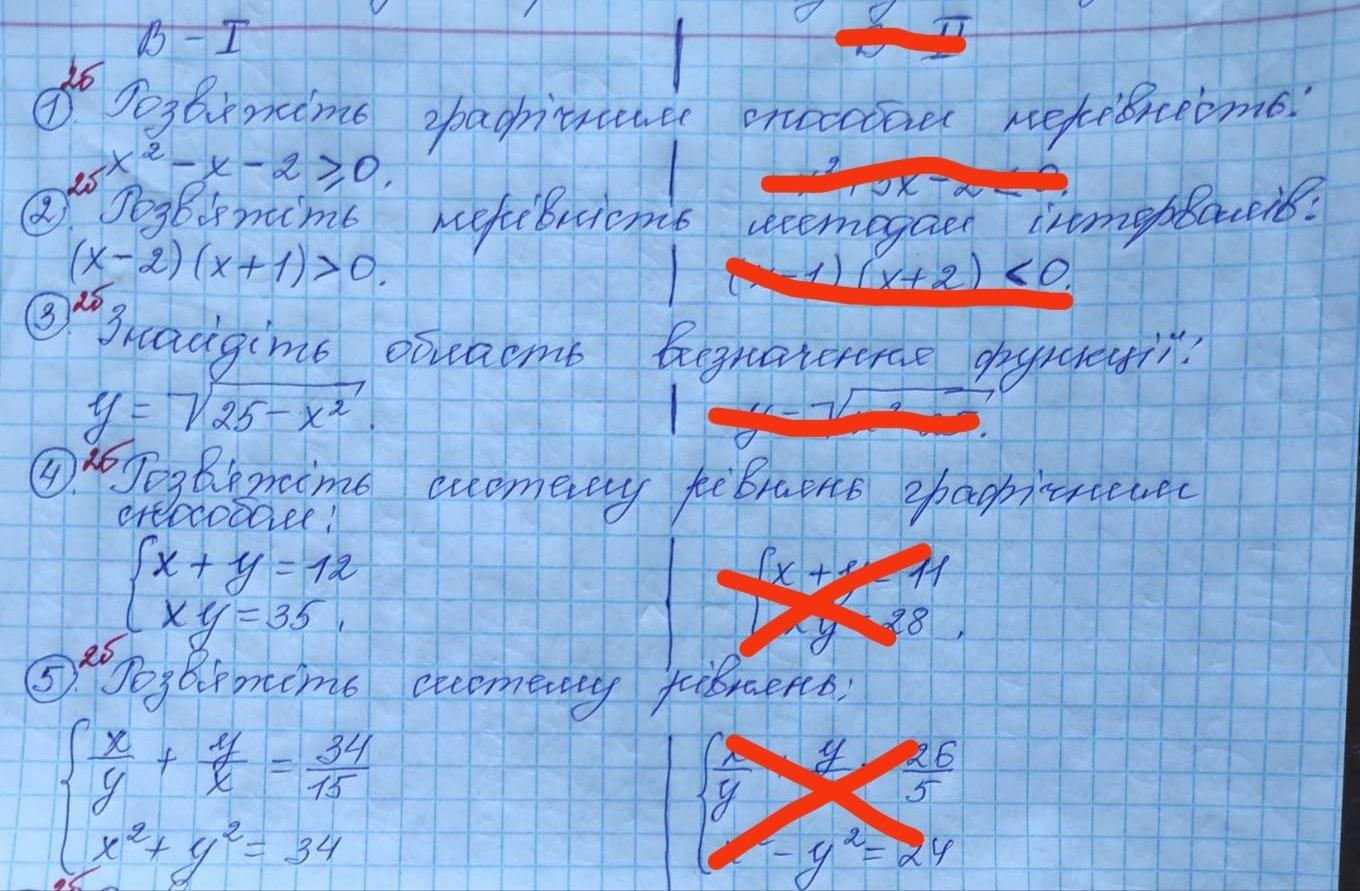 В – I
2б
① Розв'яжіть графічним способом нерівність:
x² – x – 2 ⩾ 0.
2б
② Розв'яжіть нерівність методом інтервалів:
(x – 2)(x + 1) > 0. (x – 1)(x + 2) < 0.
2б
③ Знайдіть область визначення функції:
y = √(25 – x²).
2б
④ Розв'яжіть систему рівнянь графічним
способом:
{ x + y = 12 { x + y = 11
xy = 35, xy = 28,
2б
⑤ Розв'яжіть систему рівнянь:
{ x/y + y/x = 34/15 x/y y 26/5
x² + y² = 34 – y² = 24
2б